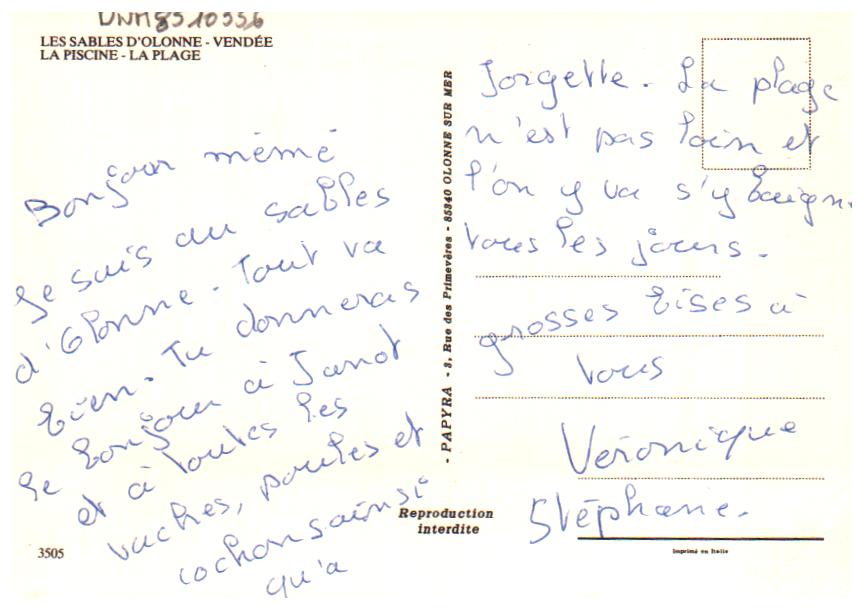 DNM8510556
LES SABLES D'OLONNE - VENDÉE
LA PISCINE - LA PLAGE
Bonjour mémé
Je suis au sables
d'Olonne. Tout va
bien. Tu donneras
le bonjour à Janot
et à toutes les
vaches, poules et
cochons ainsi
qu'a
3505
- PAPYRA - 3, Rue des Primevères - 85340 OLONNE SUR MER
Reproduction
interdite
Jorgette. La plage
n'est pas loin et
l'on y va s'y baign
tous les jours.
grosses bises à
vous
Veronique
Stéphane.
Imprimé en Italie